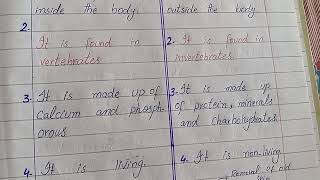 inside the body
outside the body
2. It is found in
vertebrates
2. It is found in
invertebrates
3. It is made up of
Calcium and phosph-
orous
3. It is made up
of protein, minerals
and charbohydrates
4. It is living
4. It is non-living
→ Removal of old